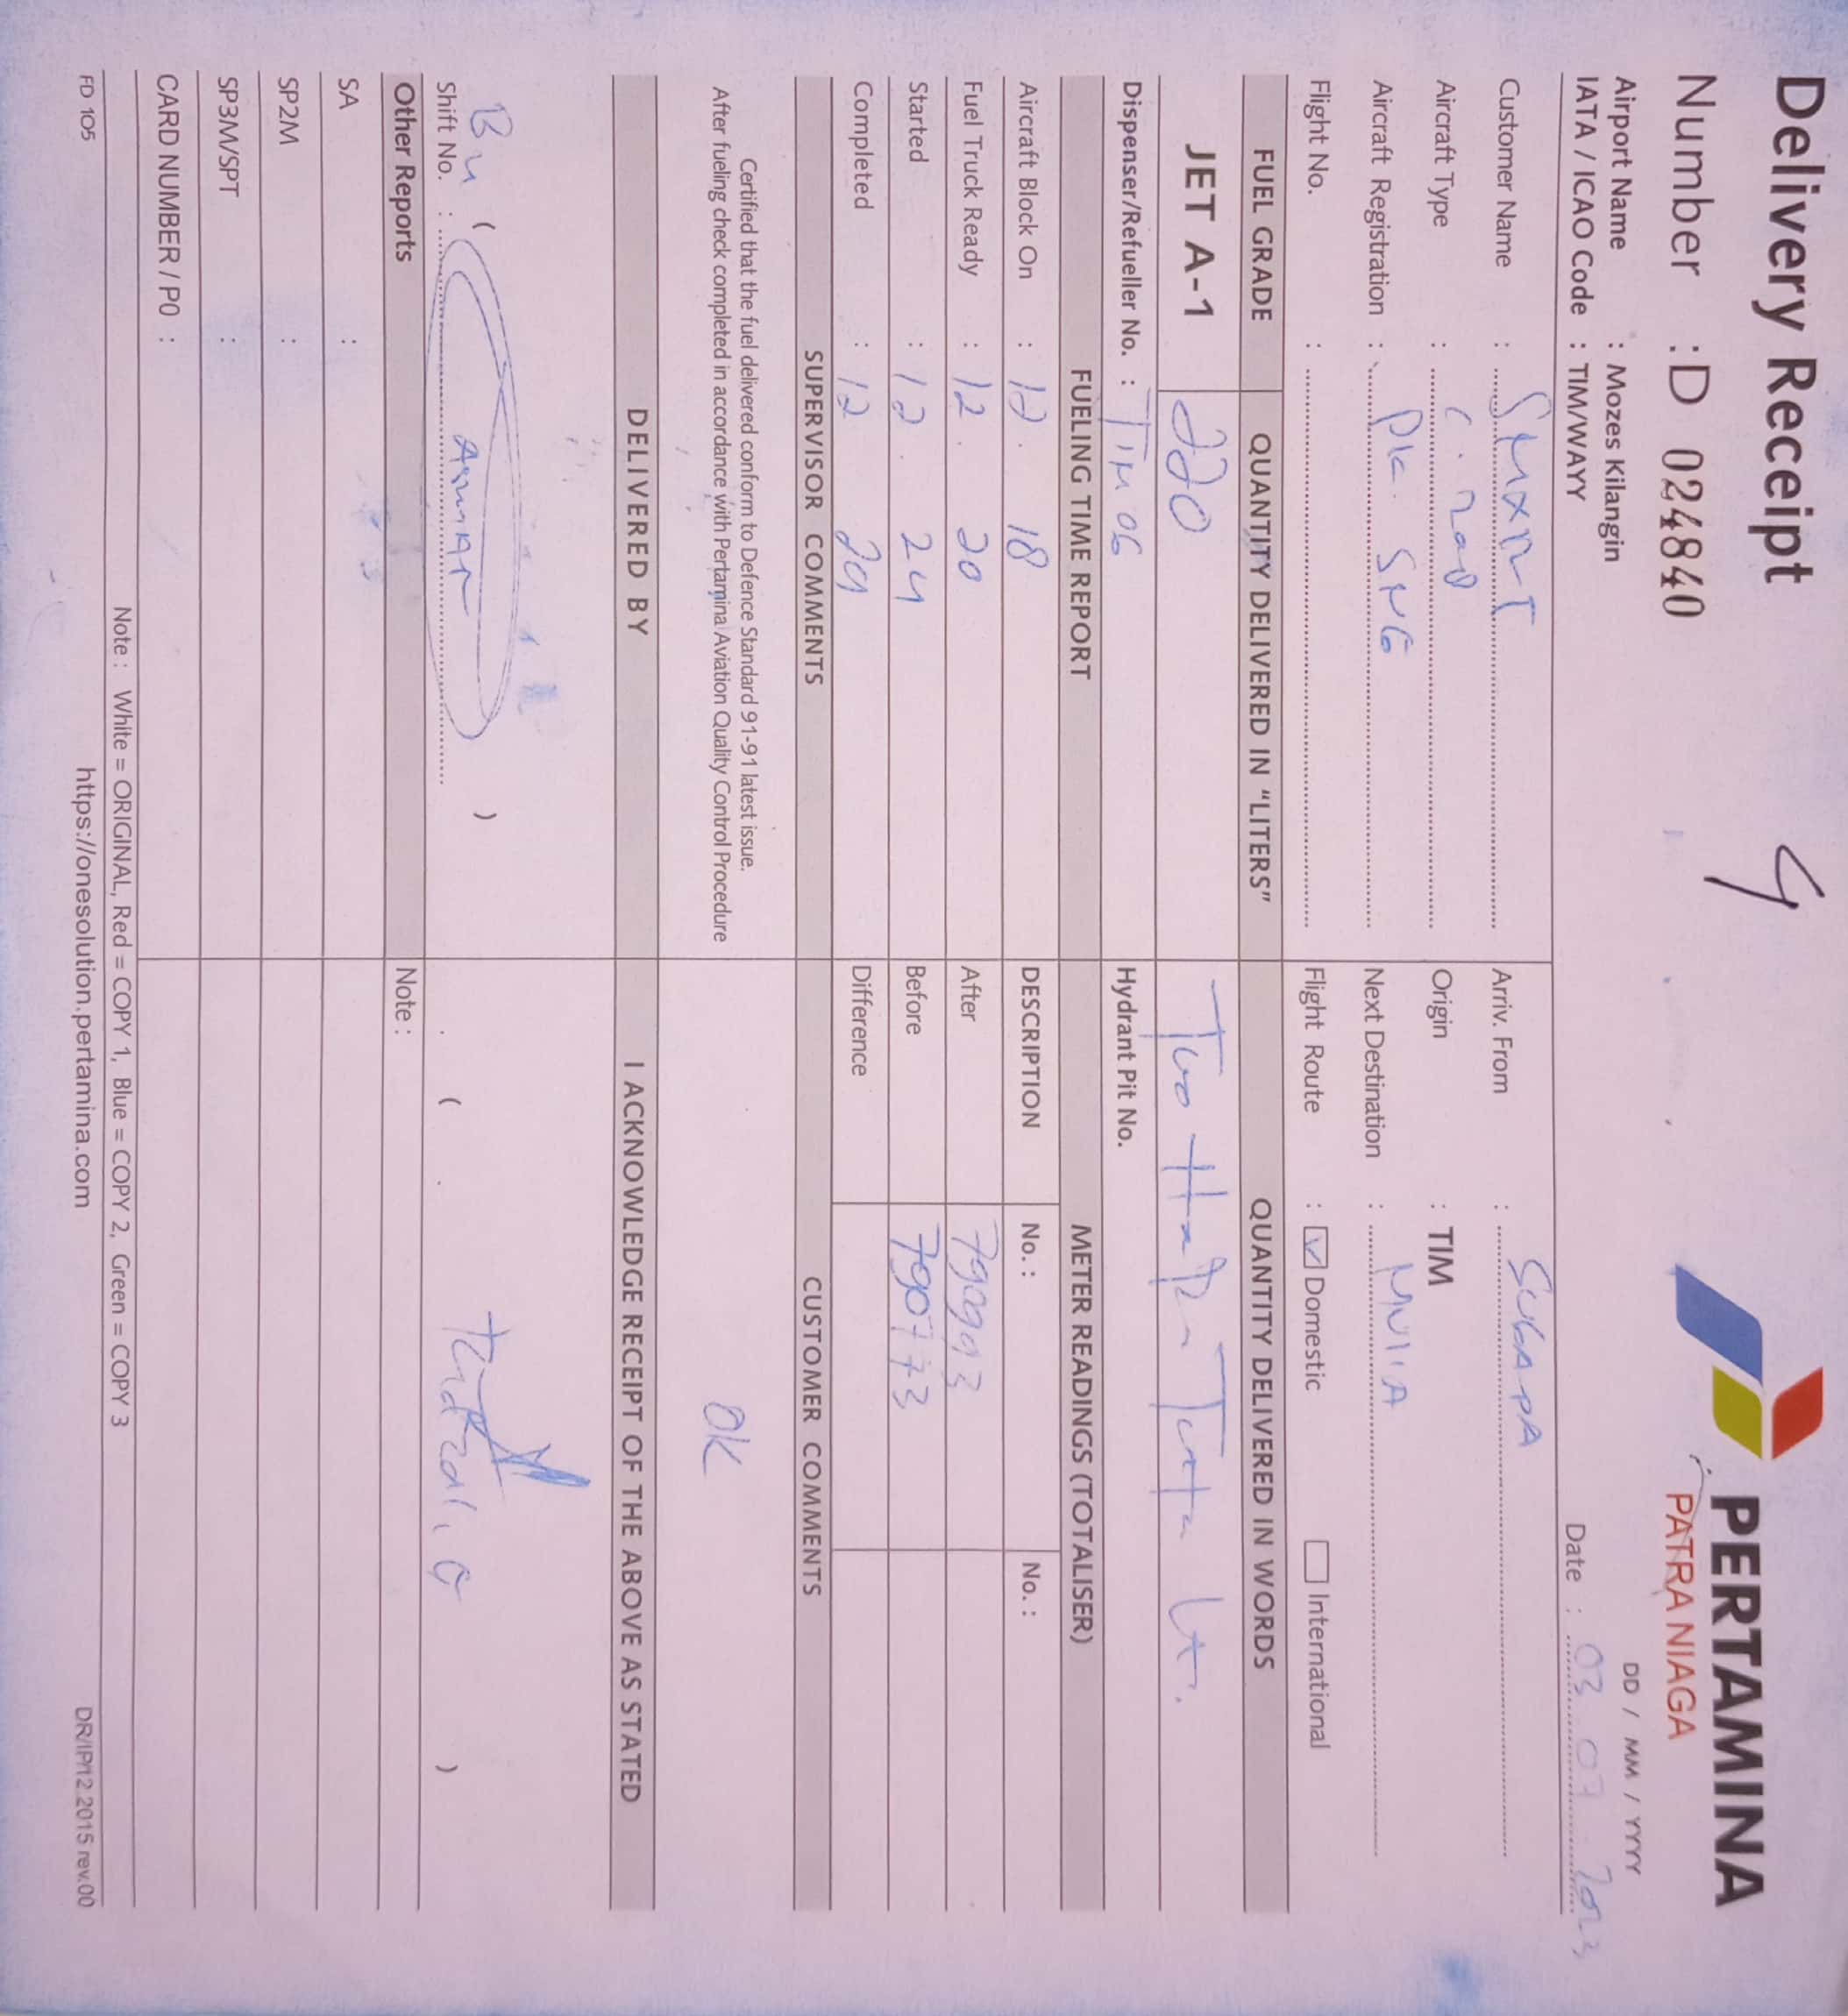 Delivery Receipt
4
PERTAMINA
PATRA NIAGA
Number : D 024840
DD / MM / YYYY
Airport Name : Mozes Kilangin
IATA / ICAO Code : TIM/WAYY
Date : 03 07 2023
Customer Name : SMART
Arriv. From : SUGAPA
Aircraft Type : C. 208
Origin : TIM
Aircraft Registration : PK. SNG
Next Destination : MULIA
Flight No. :
Flight Route : ☑ Domestic ☐ International
FUEL GRADE
QUANTITY DELIVERED IN "LITERS"
QUANTITY DELIVERED IN WORDS
JET A-1
220
Two
Dispenser/Refueller No. : TIM 06
Hydrant Pit No.
FUELING TIME REPORT
METER READINGS (TOTALISER)
Aircraft Block On : 12. 18
DESCRIPTION No. : No. :
Fuel Truck Ready : 12. 20
After 790993
Started : 12. 24
Before 790773
Completed : 12 29
Difference
SUPERVISOR COMMENTS
CUSTOMER COMMENTS
Certified that the fuel delivered conform to Defence Standard 91-91 latest issue.
After fueling check completed in accordance with Pertamina Aviation Quality Control Procedure
OK
DELIVERED BY
I ACKNOWLEDGE RECEIPT OF THE ABOVE AS STATED
( )
Shift No. :
( )
Other Reports
Note :
SA :
SP2M :
SP3M/SPT :
CARD NUMBER / PO :
Note : White = ORIGINAL, Red = COPY 1, Blue = COPY 2, Green = COPY 3
FD 105
https://onesolution.pertamina.com
DR/IP/12 2015 rev.00